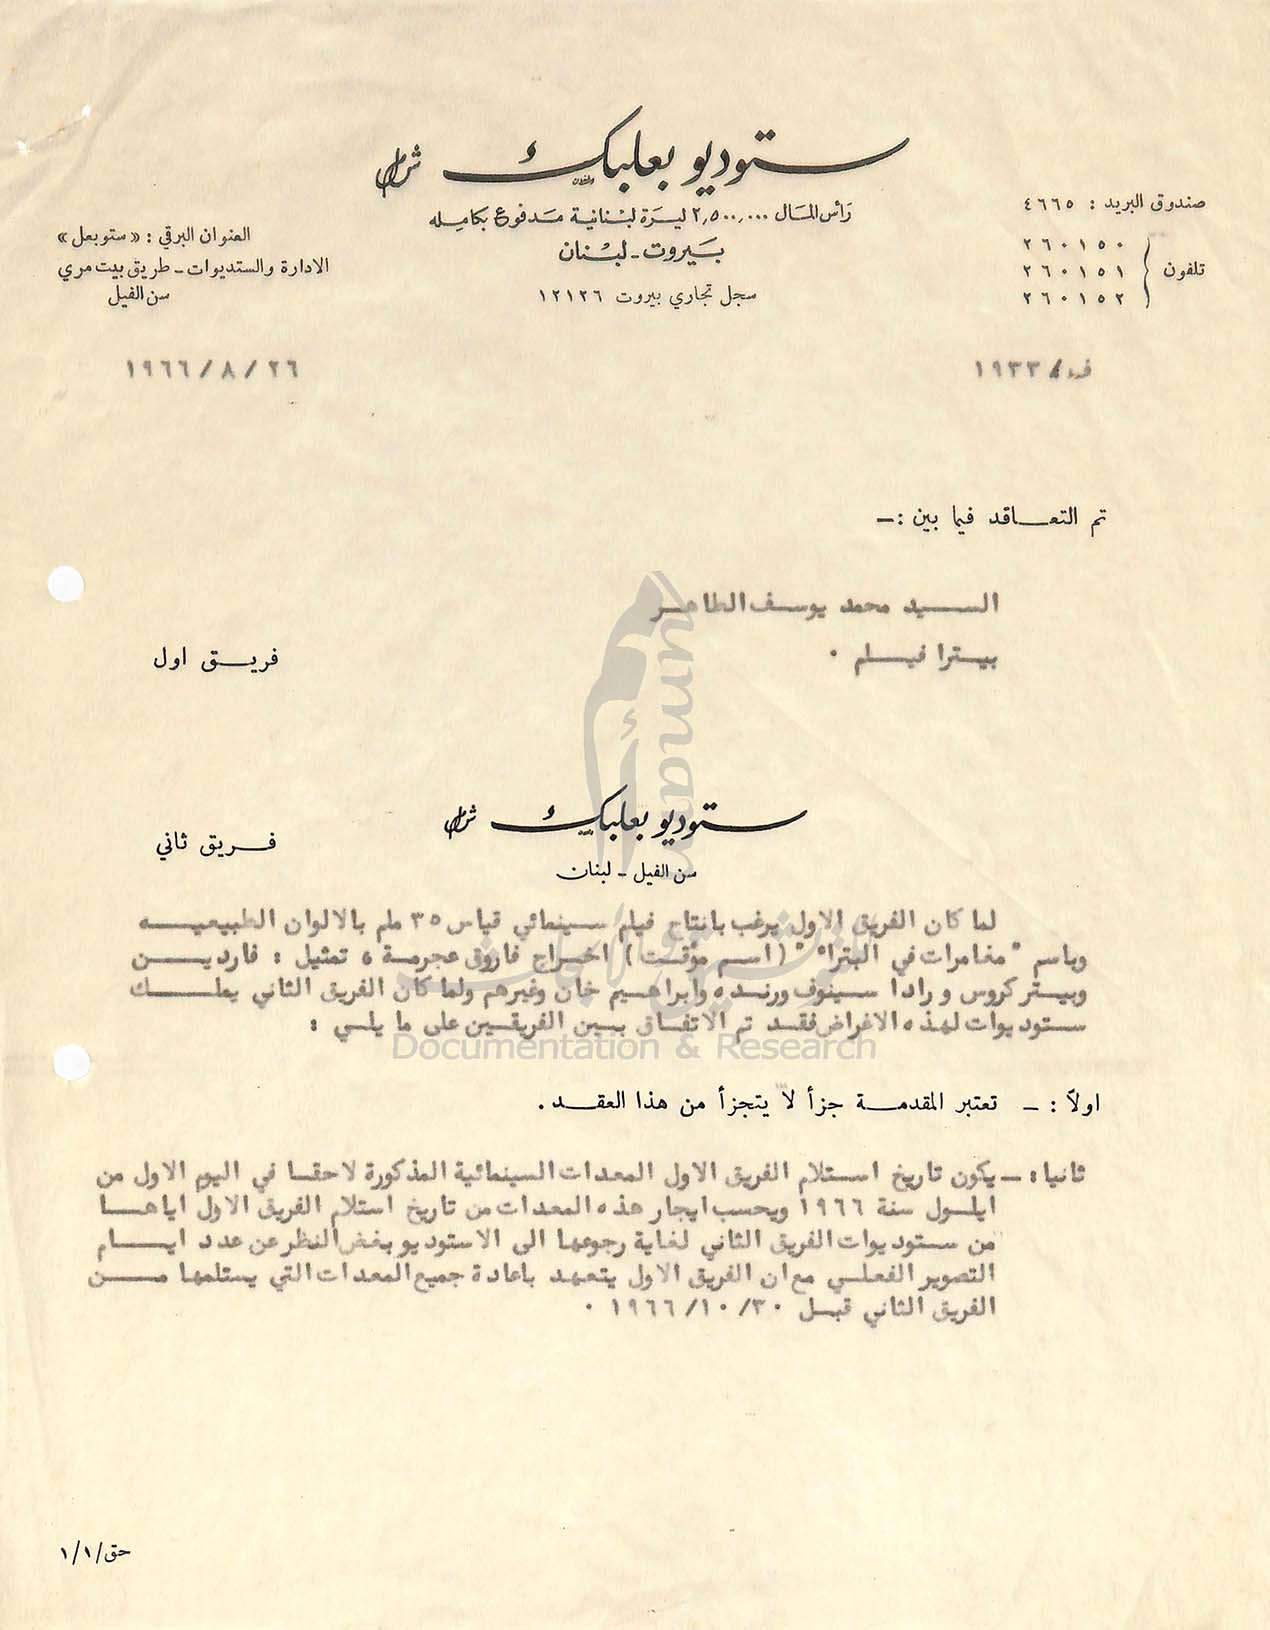 ستوديو بعلبك ش م ل
رأس المال ٢,٥٠٠,٠٠٠ ليرة لبنانية مدفوع بكامله
بيروت - لبنان
سجل تجاري بيروت ١٢١٢٦
صندوق البريد : ٤٦٦٥
تلفون
٢٦٠١٥٠
٢٦٠١٥١
٢٦٠١٥٢
العنوان البرقي : «ستوبعل»
الادارة والستديوات - طريق بيت مري
سن الفيل
١٩٣٣
٢٦ / ٨ / ١٩٦٦
تم التعاقد فيما بين :-
السيد محمد يوسف الطاهر
بيترا فيلم ٠
فريق اول
ستوديو بعلبك ش م ل
سن الفيل - لبنان
فريق ثاني
لما كان الفريق الاول يرغب بانتاج فيلم سينمائي قياس ٣٥ ملم بالالوان الطبيعيه
وباسم "مغامرات في البترا" (اسم مؤقت) اخراج فاروق عجرمة ، تمثيل : فاردين
وبيتر كروس و رادا سينوف ورنده وابراهيم خان وغيرهم ولما كان الفريق الثاني يملك
ستوديوات لهذه الاغراض فقد تم الاتفاق بين الفريقين على ما يلي :
اولاً : - تعتبر المقدمة جزأ لا يتجزأ من هذا العقد .
ثانيا : - يكون تاريخ استلام الفريق الاول المعدات السينمائية المذكورة لاحقا في اليوم الاول من
ايلول سنة ١٩٦٦ ويحسب ايجار هذه المعدات من تاريخ استلام الفريق الاول اياها
من ستوديوات الفريق الثاني لغاية رجوعها الى الاستوديو بغض النظر عن عدد ايام
التصوير الفعلي مع ان الفريق الاول يتعهد باعادة جميع المعدات التي يستلمها من
الفريق الثاني قبل ٣٠/١٠/١٩٦٦ ٠
حق/١/١
umam
Documentation & Research